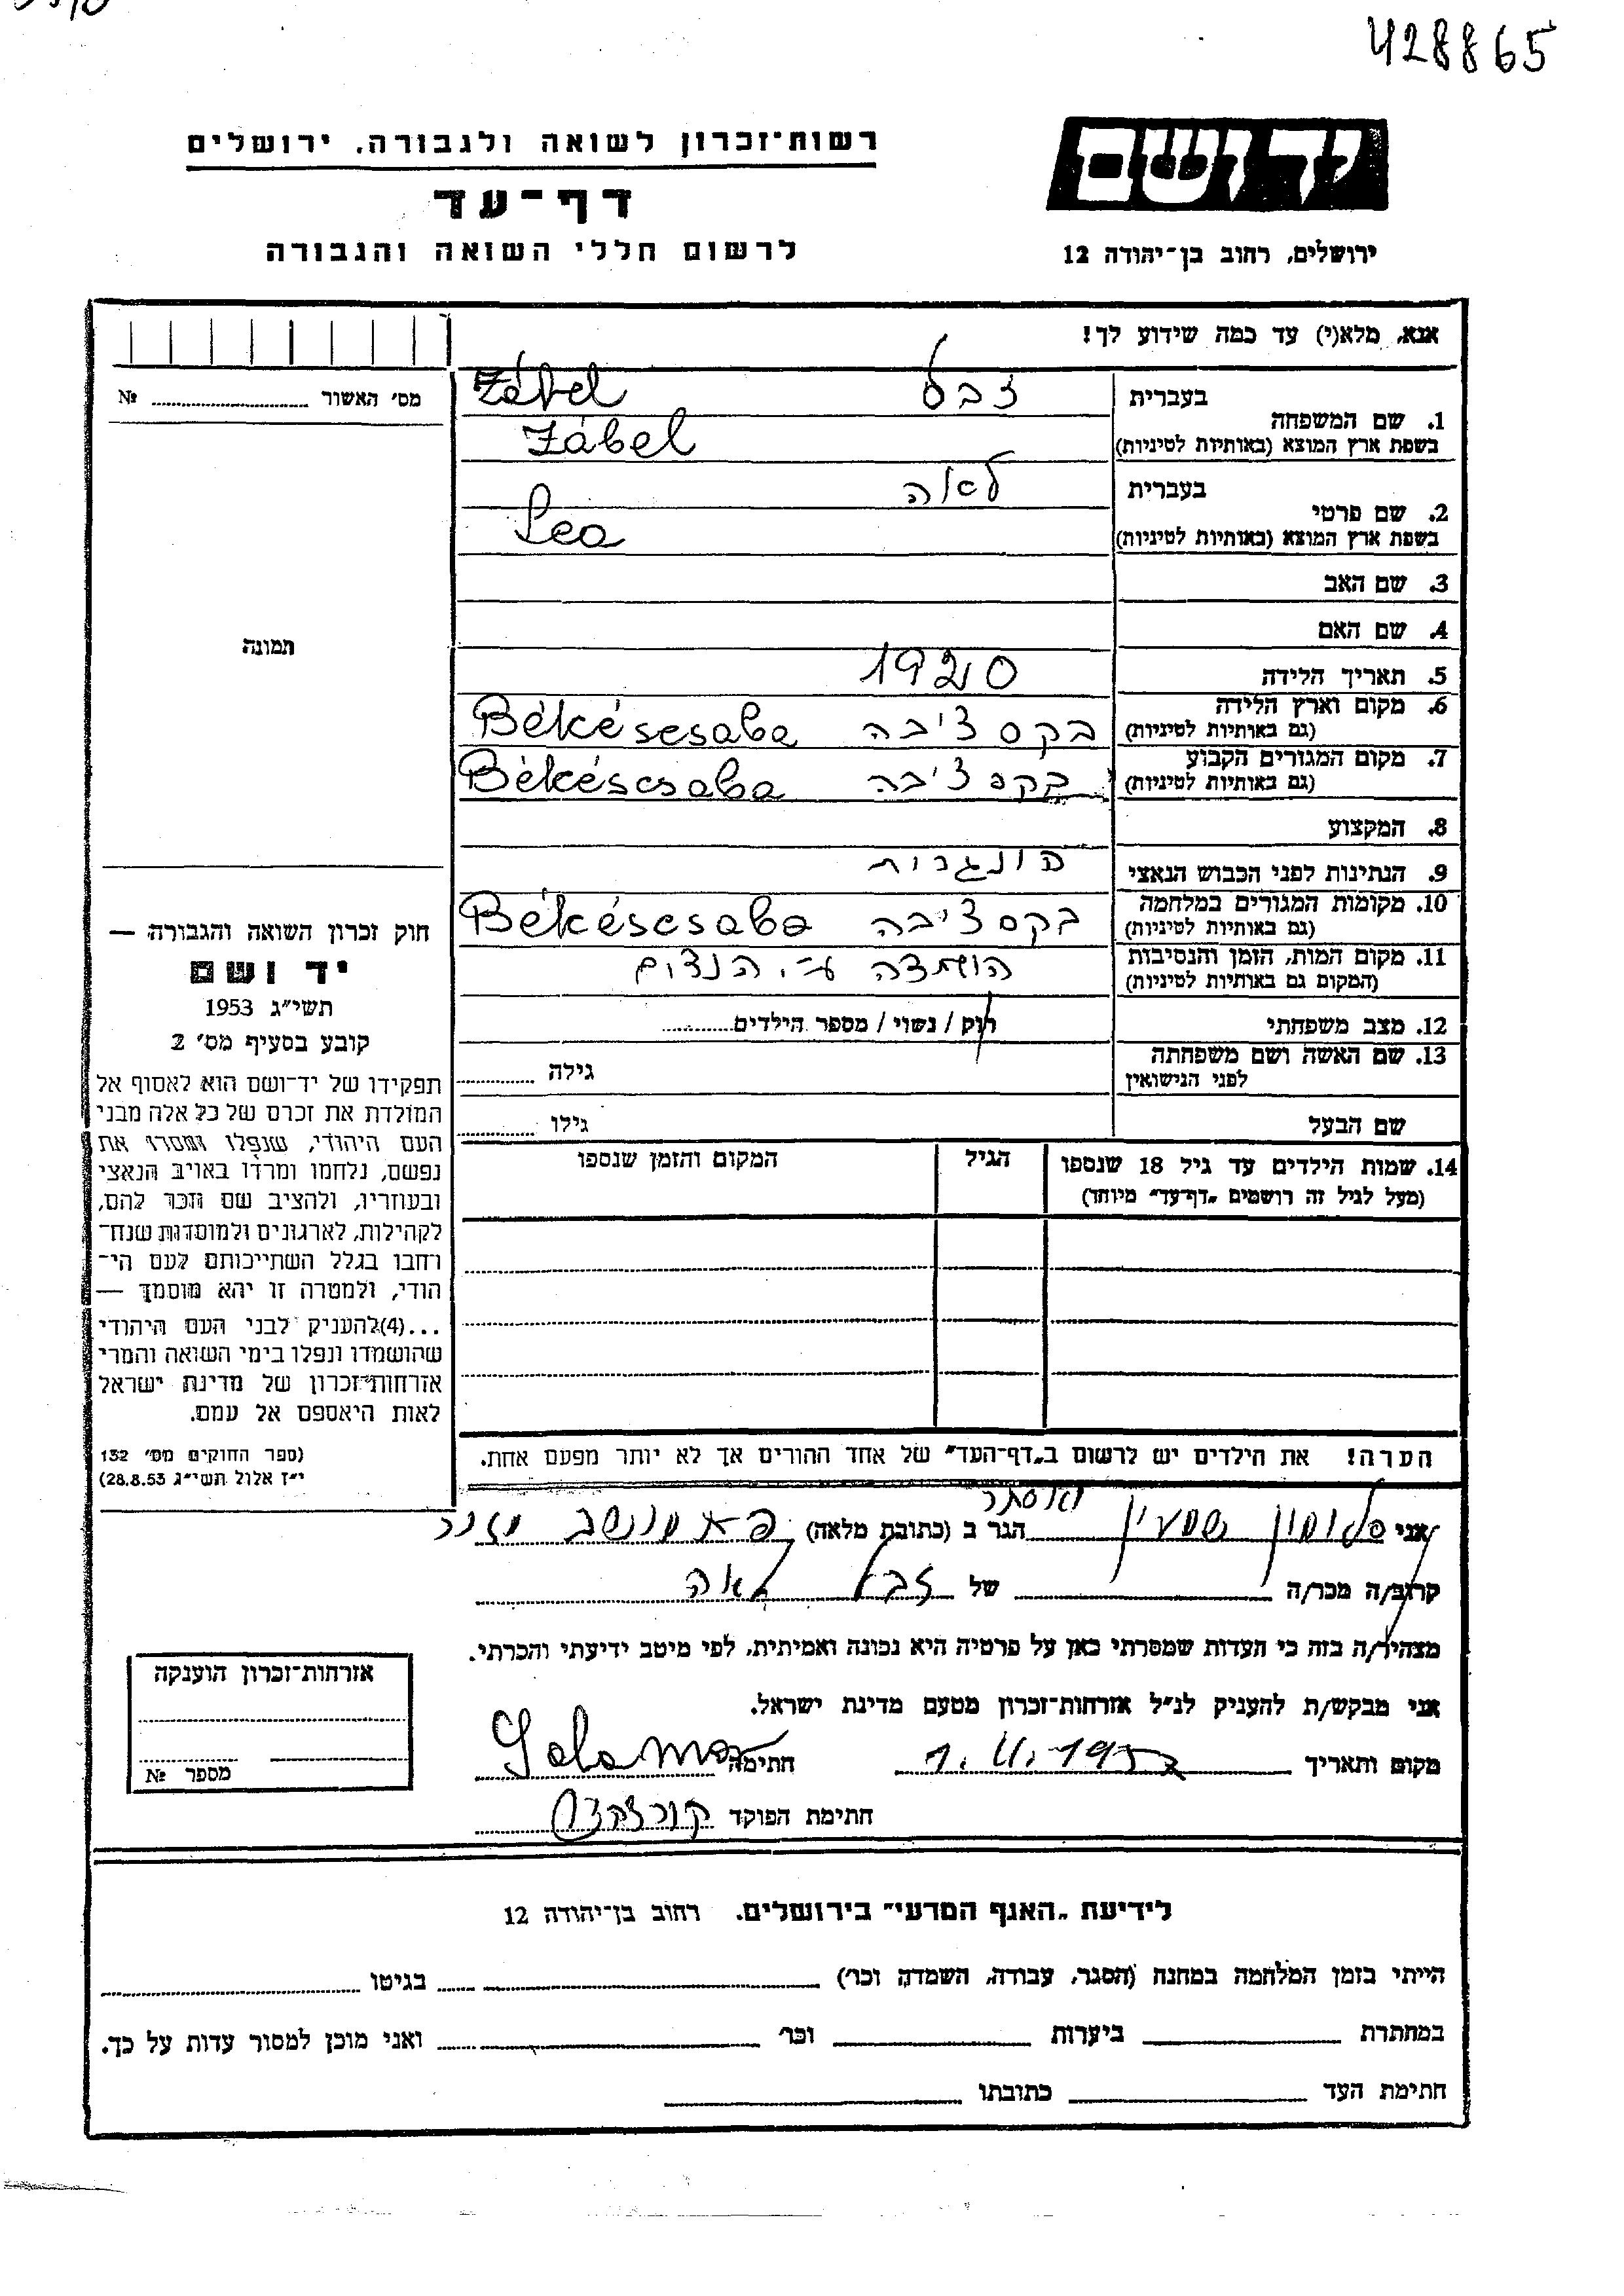 428865
יד ושם
ירושלים, רחוב בן־יהודה 12
רשות־זכרון לשואה ולגבורה, ירושלים
דף־עד
לרשום חללי השואה והגבורה
אנא, מלא(י) עד כמה שידוע לך!
מס׳ האשור № 
1. שם המשפחה
בעברית זבל Zábel
בשפת ארץ המוצא (באותיות לטיניות) Zábel
2. שם פרטי
בעברית לאה
בשפת ארץ המוצא (באותיות לטיניות) Lea
3. שם האב
4. שם האם
5. תאריך הלידה 1920
6. מקום וארץ הלידה
(גם באותיות לטיניות) בקס צ'בה Békéscsaba
7. מקום המגורים הקבוע
(גם באותיות לטיניות) בקס צ'בה Békéscsaba
8. המקצוע
9. הנתינות לפני הכבוש הנאצי הונגרית
10. מקומות המגורים במלחמה
(גם באותיות לטיניות) בקס צ'בה Békéscsaba
11. מקום המות, הזמן והנסיבות
(המקום גם באותיות לטיניות) הושמדה ע"י הנצים
12. מצב משפחתי רוק / נשוי / מספר הילדים
13. שם האשה ושם משפחתה
לפני הנישואין גילה
שם הבעל גילו
14. שמות הילדים עד גיל 18 שנספו
(מעל לגיל זה רושמים „דף־עד" מיוחד)
הגיל
המקום והזמן שנספו
הערה! את הילדים יש לרשום ב„דף־העד" של אחד ההורים אך לא יותר מפעם אחת.
תמונה
חוק זכרון השואה והגבורה —
יד ושם
תשי״ג 1953
קובע בסעיף מס׳ 2
תפקידו של יד־ושם הוא לאסוף אל
המולדת את זכרם של כל אלה מבני
העם היהודי, שנפלו ומסרו את
נפשם, נלחמו ומרדו באויב הנאצי
ובעוזריו, ולהציב שם וזכר להם,
לקהילות, לארגונים ולמוסדות שנח־
רחבו בגלל השתייכותם לעם הי־
הודי, ולמטרה זו יהא מוסמך —
...(4) להעניק לבני העם היהודי
שהושמדו ונפלו בימי השואה והמרי
אזרחות־זכרון של מדינת ישראל
לאות היאספם אל עמם.
(ספר החוקים מס׳ 132
י״ז אלול תשי״ג 28.8.53)
ואסתר
אני סלומון שמעון הגר ב (כתובת מלאה) מושב
קרוב/ה מכר/ה של זבל לאה
מצהיר/ה בזה כי העדות שמסרתי כאן על פרטיה היא נכונה ואמיתית, לפי מיטב ידיעתי והכרתי.
אני מבקש/ת להעניק לנ״ל אזרחות־זכרון מטעם מדינת ישראל.
מקום ותאריך חתימה Salamon
חתימת הפוקד
אזרחות־זכרון הוענקה
מספר №
לידיעת „האגף המדעי" בירושלים. רחוב בן־יהודה 12
הייתי בזמן המלחמה במחנה (הסגר, עבודה, השמדה וכו׳) בגיטו
במחתרת ביערות וכו׳ ואני מוכן למסור עדות על כך.
חתימת העד כתובתו